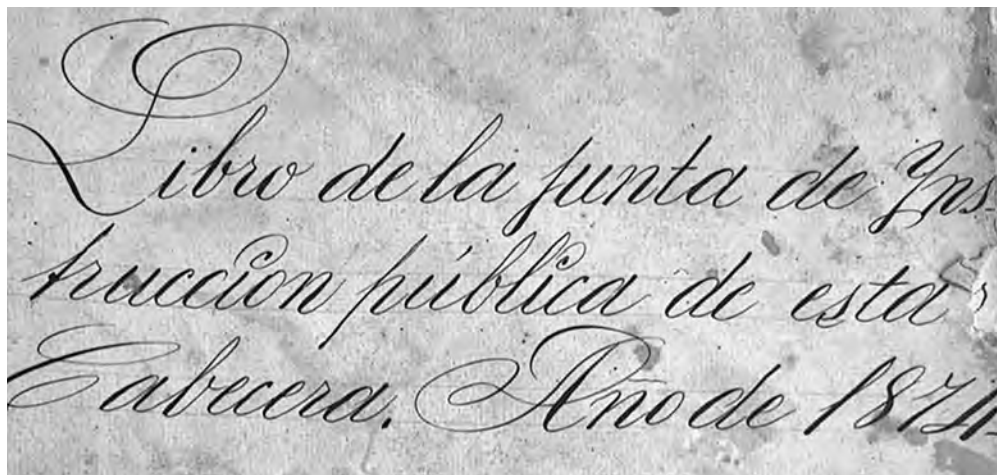 Libro de la junta de Yns-
truccion pública de esta
Cabecera. Año de 1874